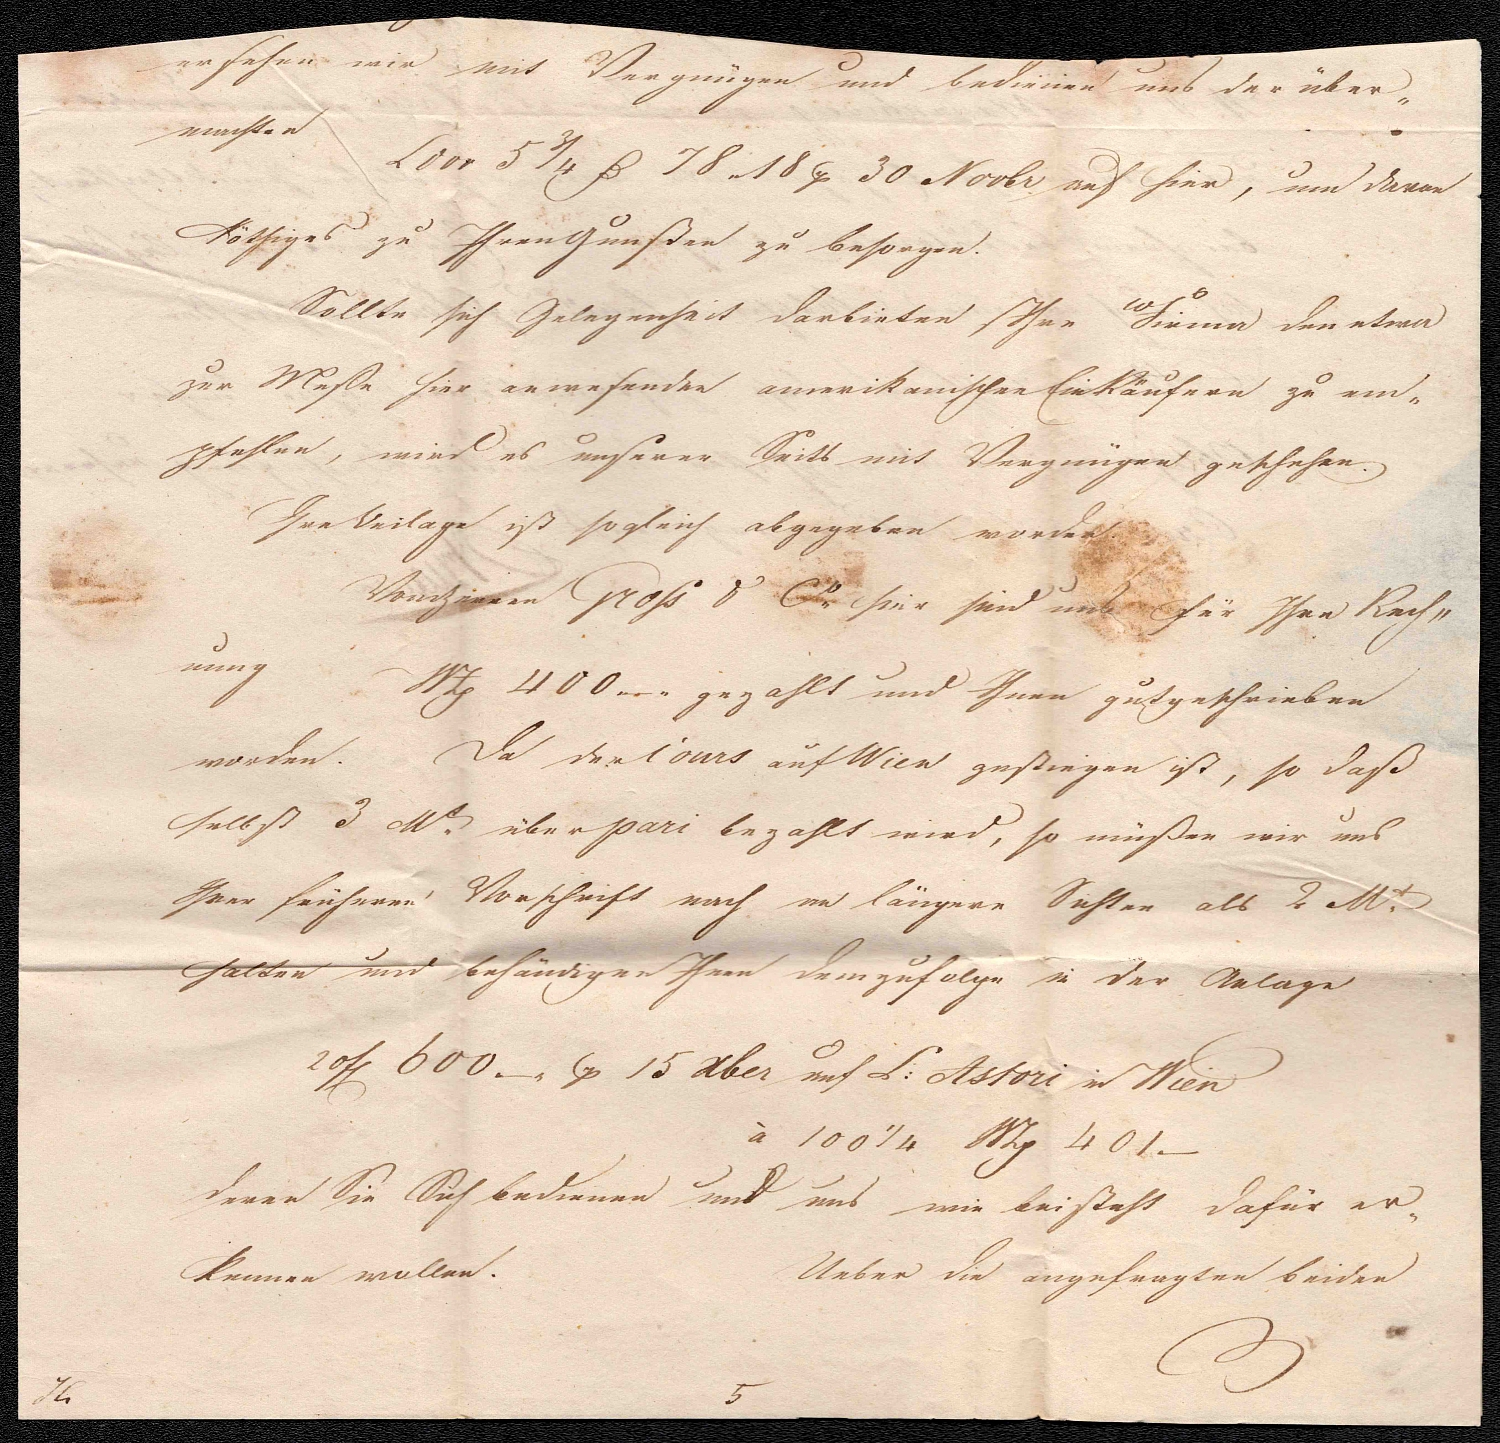 ersehen wir mit Vergnügen und bedienen uns der über„
machten
Ldor 5 3/4 ß 78.18 p 30 Novbr auf hier, um davon
Nöthiges zu Ihren Gunsten zu besorgen.
Sollte sich Gelegenheit darbieten Ihre Firma den etwa
zur Messe hier anwesenden amerikanischen Einkäufern zu em„
pfehlen, wird es unserer Seits mit Vergnügen geschehen.
Ihre Beilage ist sogleich abgegeben worden.
Von Herren Gross & Co. hier sind uns für Ihre Rech„
nung
400.— gezahlt und Ihnen gutgeschrieben
worden. Da der Cours auf Wien gestiegen ist, so daß
selbst 3 Mt. über pari bezahlt wird, so müßen wir uns
Ihrer früheren Vorschrift nach an längere Sichten als 2 Mt.
halten und behändigen Ihnen demzufolge in der Anlage
20f 600.— p 15 Xber auf L: Astori in Wien
à 100 1/4 401.—
deren Sie Sich bedienen und uns wie beisteht dafür er„
kennen wollen. Ueber die angefragten beiden
5